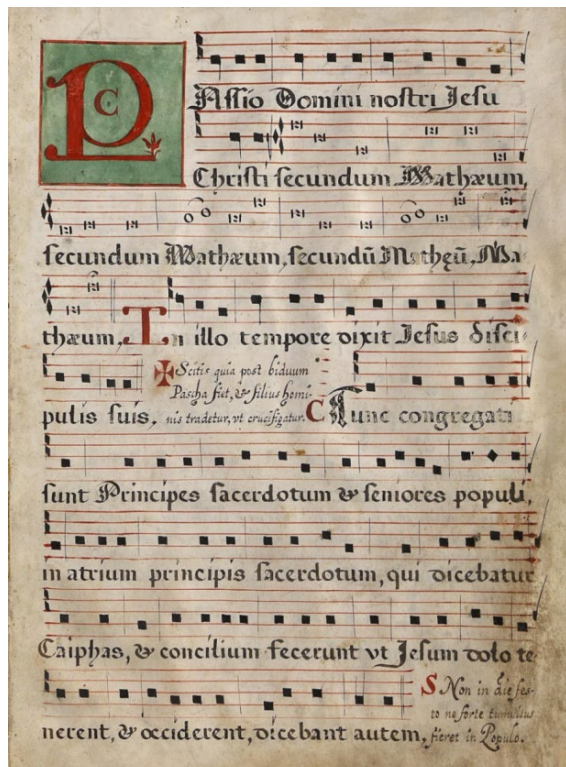 PAssio Domini nostri Jesu
C
Christi secundum Mathæum,
secundum Mathæum, secundũ Mathęũ, Ma
thæum, In illo tempore dixit Jesus disci-
✠ Scitis quia post biduum
Pascha fiet, & filius homi-
pulis suis, nis tradetur, vt crucifigatur. C Tunc congregati
sunt Principes sacerdotum & seniores populi,
in atrium principis sacerdotum, qui dicebatur
Caiphas, & concilium fecerunt vt Jesum dolo te-
S Non in die fes-
to ne forte tumultus
nerent, & occiderent, dicebant autem, fieret in Populo.